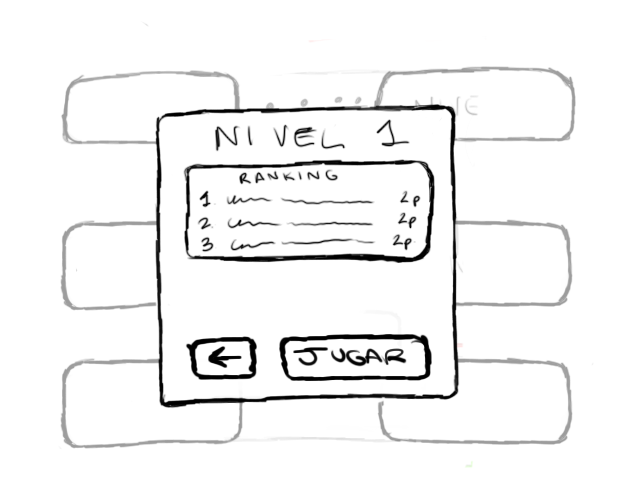 NIVEL 1
RANKING
1 2p
2 2p
3 2p
← JUGAR